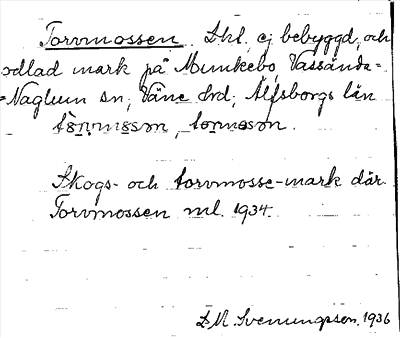 Torvmossen. Skl. ej bebyggd, och
odlad mark på Munkebo, Vassända-
=Naglum sn, Väne hrd, Älfsborgs län
tòrmısøn, tormosøn.
Skogs- och torvmosse-mark där.
Torvmossen ml. 1934.
M. Svenungsson. 1936